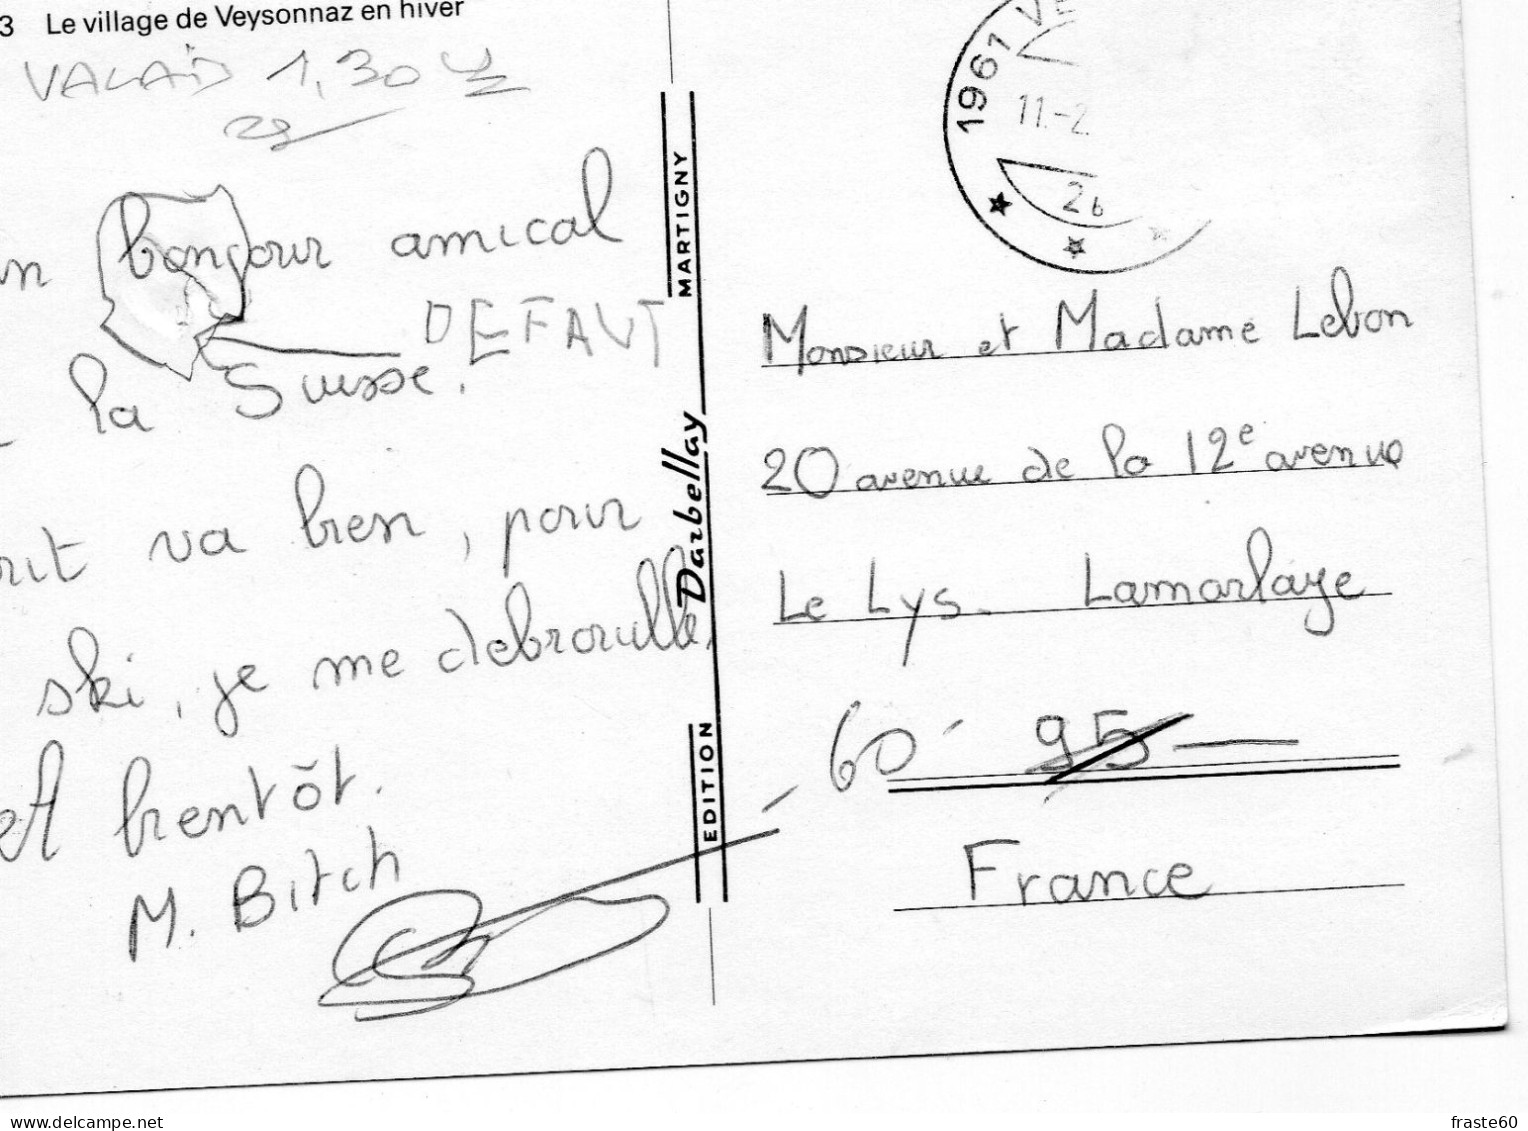 3 Le village de Veysonnaz en hiver
VALAIS 1,30
bonjour amical
DEFAUT
la Suisse.
va bien, pour
ski, je me debrouille.
A bientôt.
M. Bitch
MARTIGNY
Darbellay
EDITION
1961 VE
11.-2.
Monsieur et Madame Lebon
20 avenue de la 12e avenue
Le Lys. Lamorlaye
60 95
France
delcampe.net
fraste60